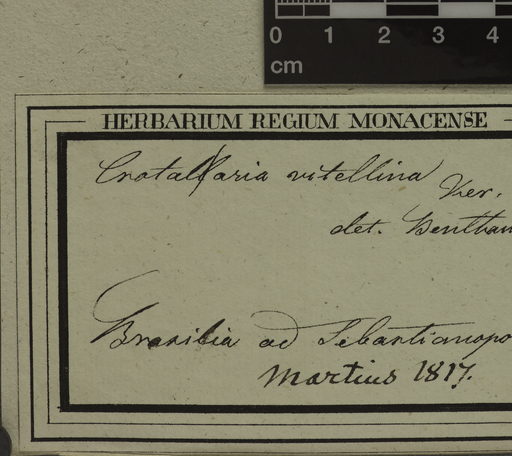 0 1 2 3 4
cm
HERBARIUM REGIUM MONACENSE
Crotallaria vitellina Ker.
det. Bentham
Brasilia ad Sebastianopo
Martius 1817.